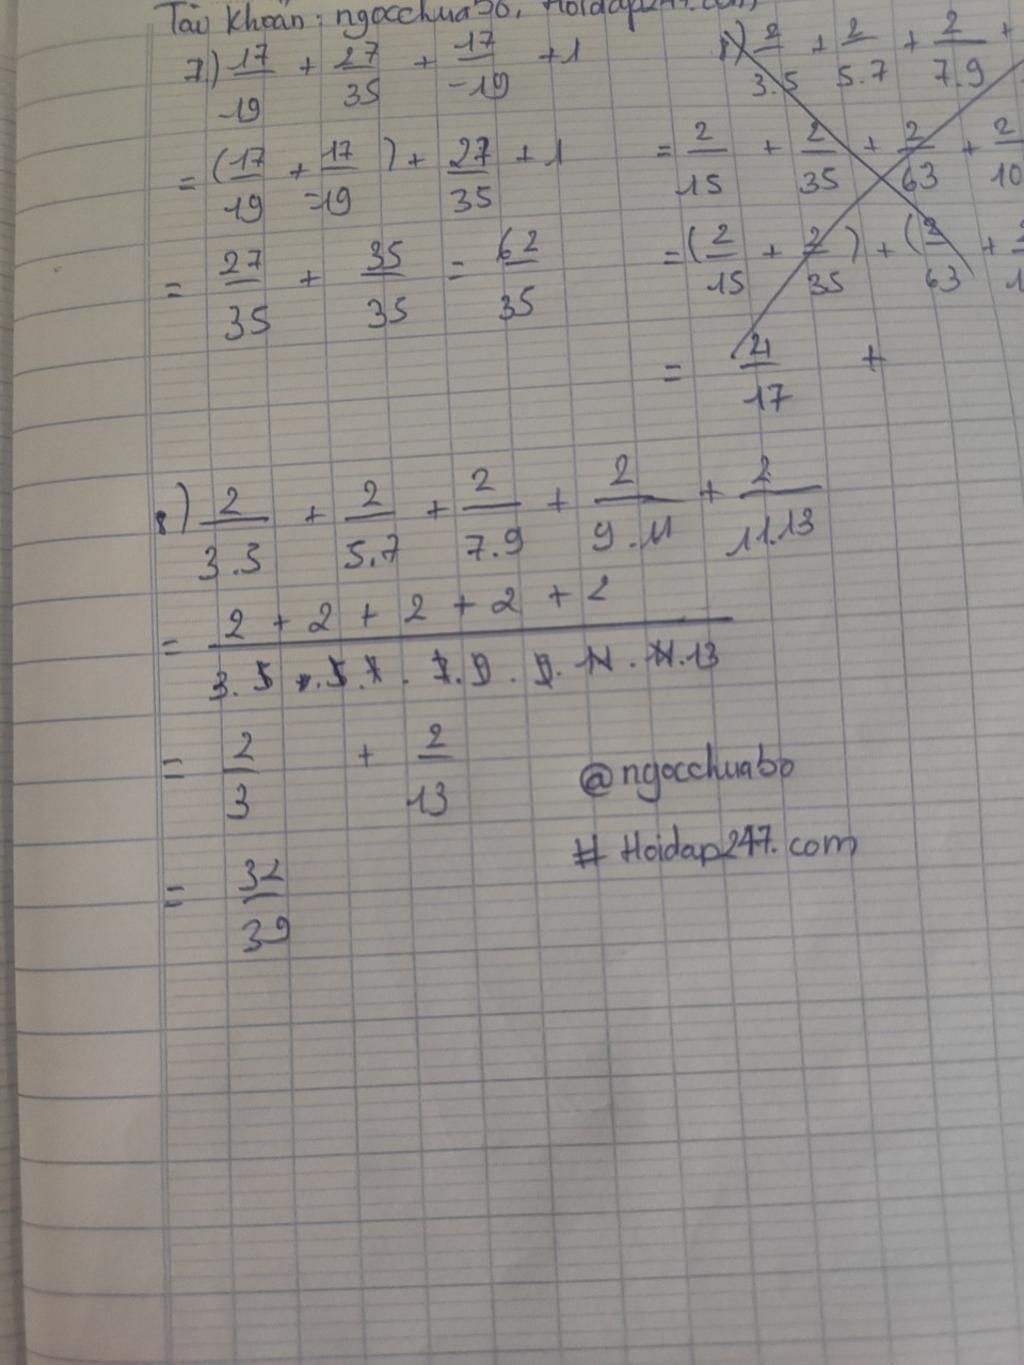 Tài Khoản: ngocchuabo, Hoidap247.com
7) 17/19 + 27/35 + 17/-19 + 1
= (17/19 + 17/-19) + 27/35 + 1
= 27/35 + 35/35 = 62/35
8) 2/3.5 + 2/5.7 + 2/7.9 +
= 2/15 + 2/35 + 2/63 + 2/10
= (2/15 + 2/35) + (2/63 +
= 4/17 +
8) 2/3.5 + 2/5.7 + 2/7.9 + 2/9.11 + 2/11.13
= 2 + 2 + 2 + 2 + 2 / 3.5.5.7.7.9.9.11.11.13
= 2/3 + 2/13
= 32/39
@ngocchuabo
# Hoidap247.com